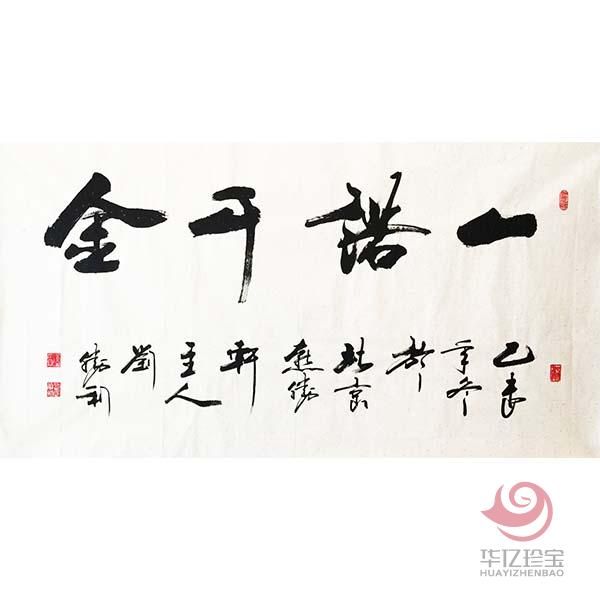 一諾千金
乙未
年冬
於
北京
勝
軒
主人
劉
勝利
华亿珍宝
HUAYIZHENBAO